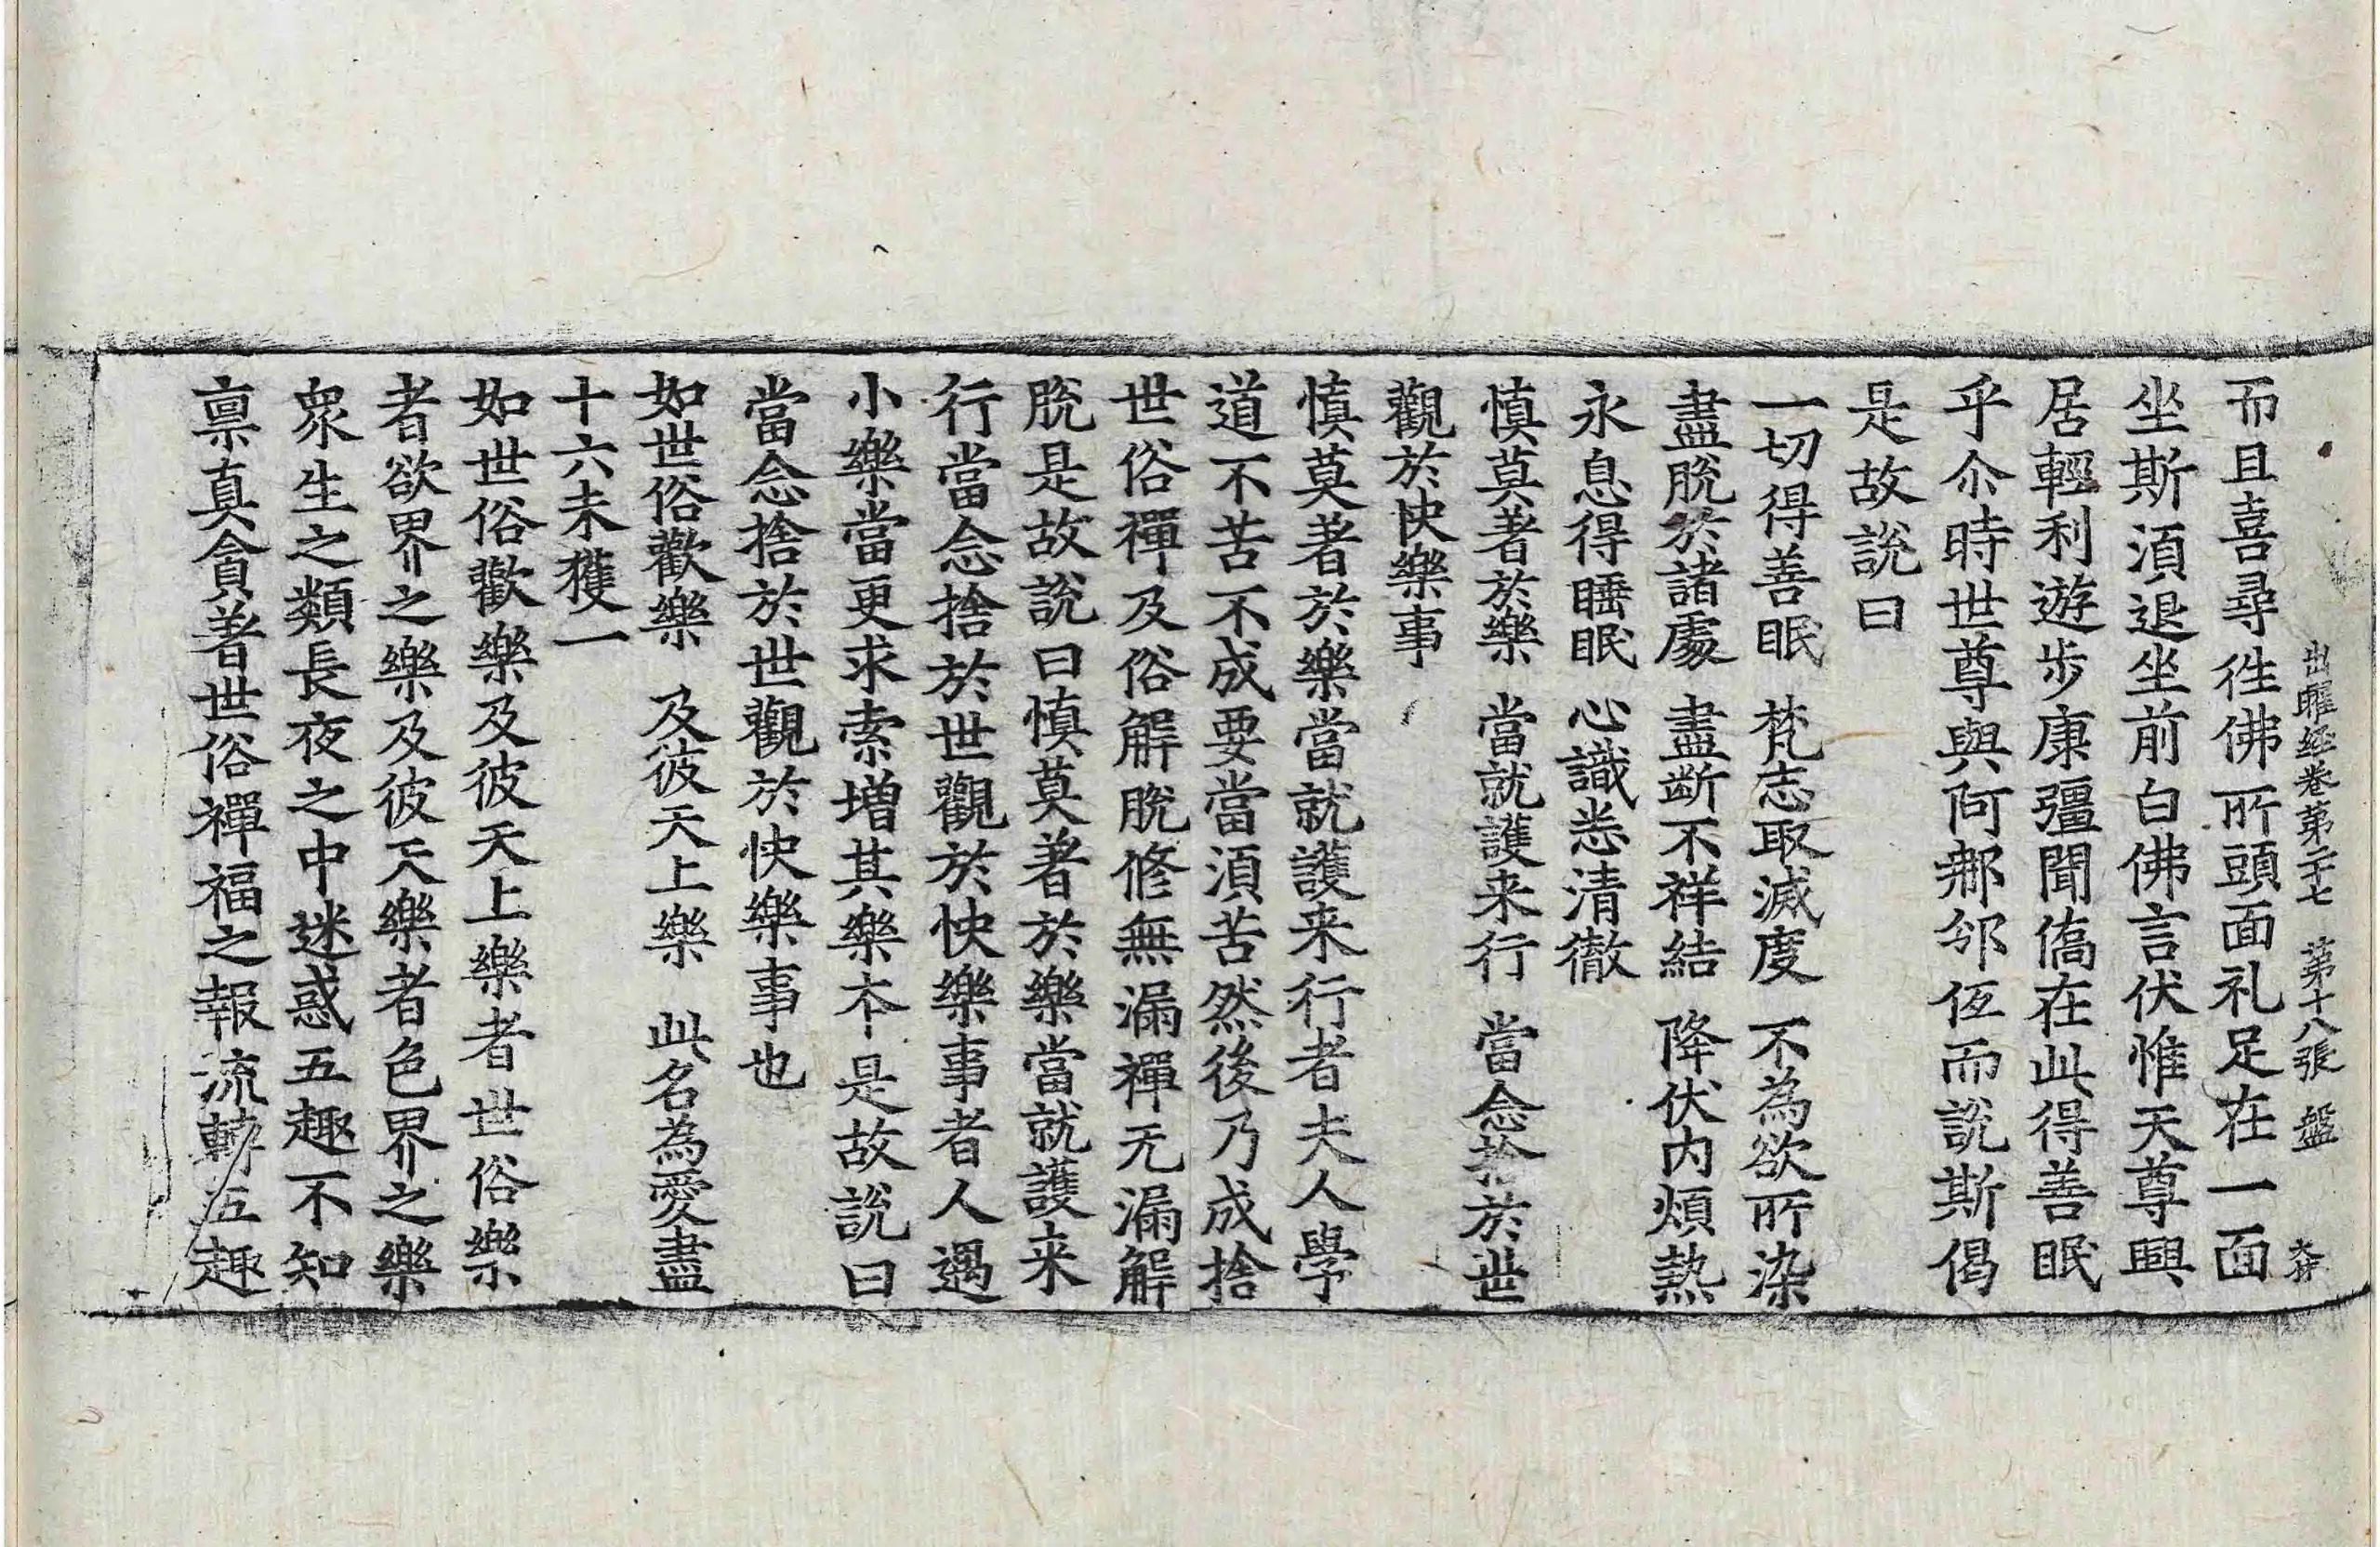 出曜經卷第二十七 第十八張 盤
而且喜尋徃佛所頭面礼足在一面
坐斯湏退坐前白佛言伏惟天尊興
居輕利遊步康彊聞僑在此得善眠
乎尒時世尊與阿那邠伍而說斯偈
是故說曰
一切得善眠 梵志取滅度 不為欲所染
盡脫於諸處 盡断不祥結 降伏内煩熱
永息得睡眠 心識悉清徹
慎莫著於樂 當就護来行 當念捨於世
觀於快樂事
慎莫著於樂當就護来行者夫人學
道不苦不成要當湏苦然後乃成捨
世俗禪及俗解脫修無漏禪无漏解
脫是故說曰慎莫著於樂當就護来
行當念捨於世觀於快樂事者人遇
小樂當更求索增其樂本是故說曰
當念捨於世觀於快樂事也
如世俗歡樂 及彼天上樂 此名為愛盡
十六未獲一
如世俗歡樂及彼天上樂者世俗樂
者欲界之樂及彼天樂者色界之樂
衆生之類長夜之中迷惑五趣不知
禀真貪著世俗禪福之報流轉五趣